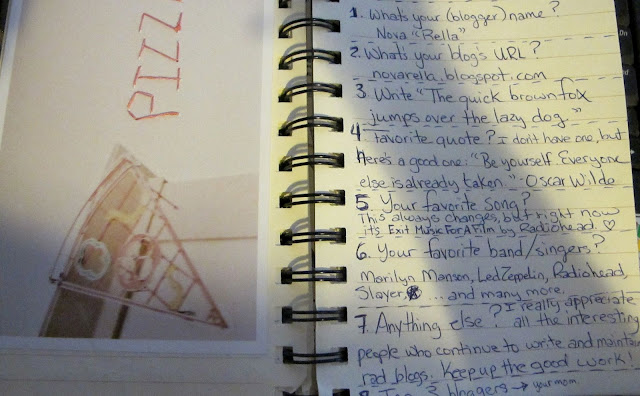 PIZZ
1. What's your (blogger) name?
Nova "Rella"
2. What's your blog's URL?
novarella.blogspot.com
3. Write "The quick brown fox
jumps over the lazy dog."
4. Favorite quote? I don't have one, but
Here's a good one: "Be yourself. Everyone
else is already taken." -Oscar Wilde
5. Your favorite song?
This always changes, but right now
its Exit Music For A Film by Radiohead. ♡
6. Your favorite band/singers?
Marilyn Manson, Led Zeppelin, Radiohead,
Slayer, ... and many more.
7. Anything else? I really appreciate
all the interesting
people who continue to write and maintain
rad blogs. Keep up the good work!
3 bloggers → your mom